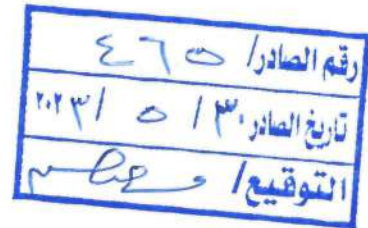 رقم الصادر/ ٤٦٥
تاريخ الصادر ٣٠ / ٥ / ٢٠٢٣
التوقيع/